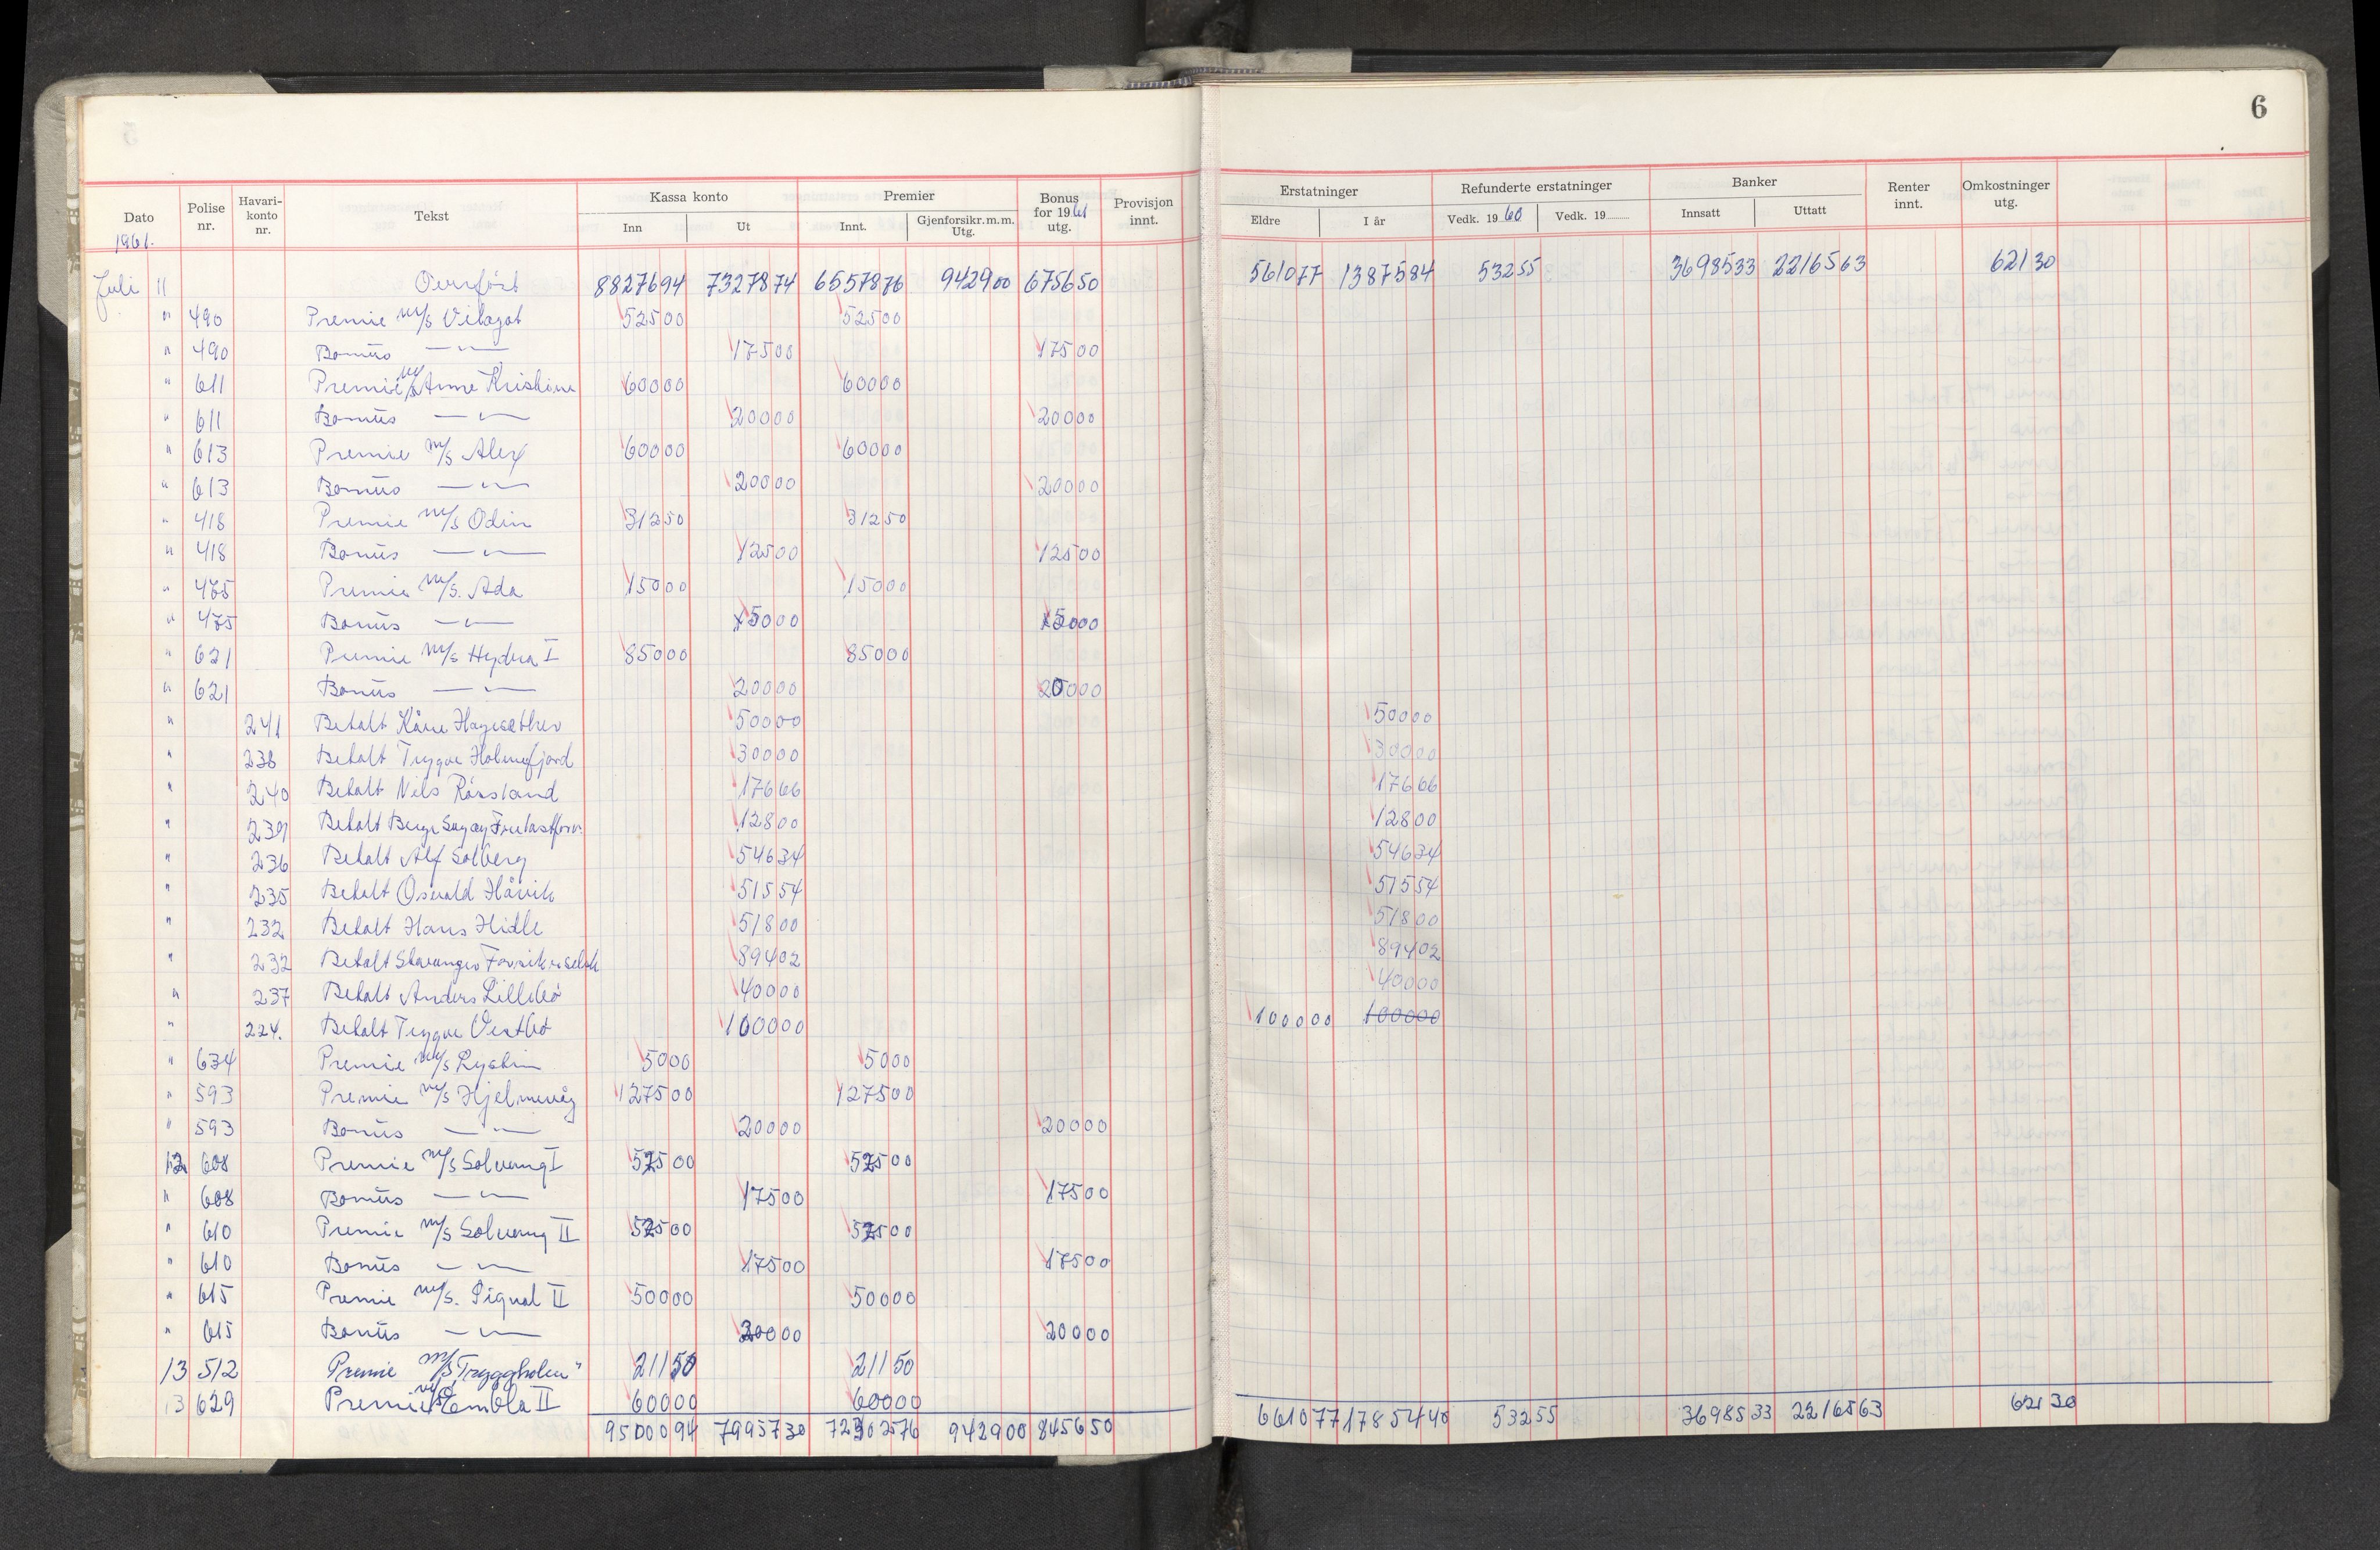 6
Dato Polise nr. Havari-konto nr. Tekst Kassa konto Inn Ut Premier Innt. Gjenforsikr.m.m. Utg. Bonus for 1961 utg. Provisjon innt. Erstatninger Eldre I år Refunderte erstatninger Vedk. 1960 Vedk. 19 Banker Innsatt Uttatt Renter innt. Omkostninger utg.
1961.
Juli 11 Overført 8827694 7327874 6557876 942900 675650 561077 1387584 53255 3698533 2216563 62130
" 490 Premie m/s 52500 52500
" 490 Bonus —"— 17500 17500
" 611 Premie m/s Anne Kristine 60000 60000
" 611 Bonus —"— 20000 20000
" 613 Premie m/s Alex 60000 60000
" 613 Bonus —"— 20000 20000
" 418 Premie m/s Odin 31250 31250
" 418 Bonus —"— 12500 12500
" 475 Premie m/s. Ada 15000 15000
" 475 Bonus —"— 5000 5000
" 621 Premie m/s Hydra I 85000 85000
" 621 Bonus —"— 20000 20000
" 241 Betalt Kåre Hagesæther 50000 50000
" 238 Betalt Trygve Holmefjord 30000 30000
" 240 Betalt Nils 17666 17666
" 239 Betalt 12800 12800
" 236 Betalt Alf Solberg 54634 54634
" 235 Betalt Osvald Håvik 51554 51554
" 232 Betalt Hans Hidle 51800 51800
" 232 Betalt Stavanger Forsikr.selsk 89402 89402
" 237 Betalt Anders Lillebø 40000 40000
" 224. Betalt Trygve Vestbø 100000 100000 100000
" 634 Premie m/s 5000 5000
" 593 Premie m/s Hjelmevåg 127500 127500
" 593 Bonus —"— 20000 20000
12 608 Premie m/s Solvang I 52500 52500
" 608 Bonus —"— 17500 17500
" 610 Premie m/s Solvang II 52500 52500
" 610 Bonus —"— 17500 17500
" 615 Premie m/s. Signal II 50000 50000
" 615 Bonus —"— 20000 20000
13 512 Premie m/s "Tryggholm" 21150 21150
13 629 Premie m/s Embla II 60000 60000
9500094 7995730 7230 2576 942900 845650 661077 1785440 53255 3698533 2216563 62130